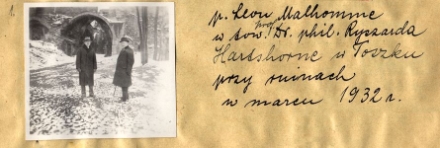 1.
p. Leon Malhomme
w tow. prof. Dr. phil. Ryszarda
Hartshorne w Toszku
przy ruinach
w marcu 1932 r.